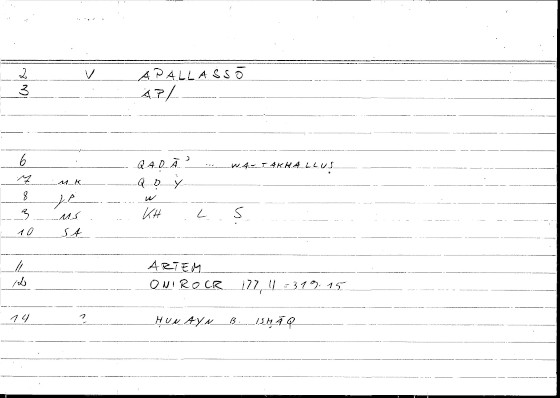 2 V APALLASSŌ
3 AP/
6 QAḌĀʾ ... WA-TAKHALLUṢ
7 MK Q Ḍ Y
8 JP W
9 MS KH L Ṣ
10 SA
11 ARTEM
12 ONIROCR 177,11 = 319.15
14 ? ḤUNAYN B. ISḤĀQ